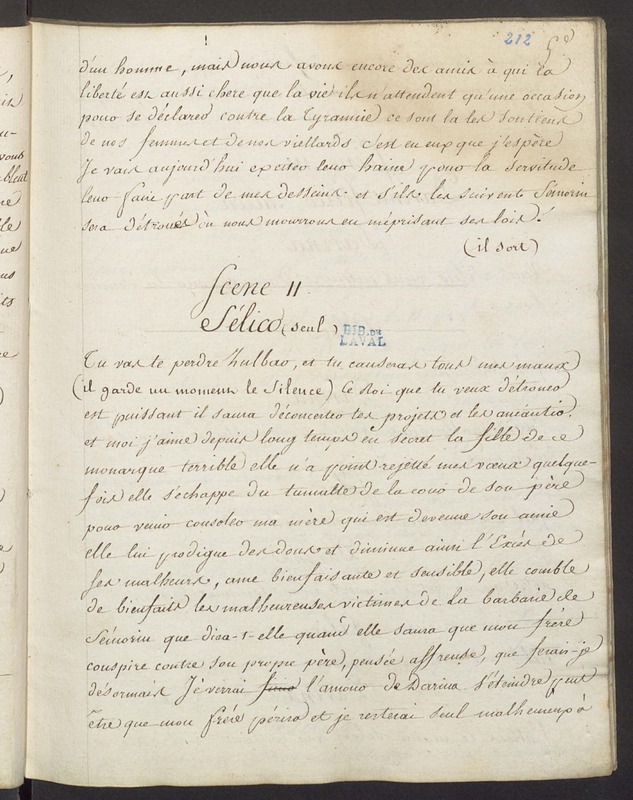 212
d'un homme, mais nous avons encore des amis à qui la
liberté est aussi chere que la vie ils n'attendent qu'une occasion
pour se déclarer contre la Tyrannie ce sont la les soutiens
de nos femmes et de nos viellards c'est en eux que j'espère
Je vais aujourd'hui exciter leur haine pour la servitude
leur faire part de mes desseins et s'ils les suivent Sémorin
sera détroné ou nous mourrons en méprisant ses lois!
(il sort)
Scene II
Sélico (seul)
BIB. DE
LAVAL
Tu vas te perdre Zulbar, et tu causeras tous mes maux
(il garde un moment le silence) Ce Roi que tu veux détroner
est puissant il saura déconcerter tes projets et les anéantir.
et moi j'aime depuis long temps en secret la fille de ce
monarque terrible elle n'a point rejetté mes vœux quelque-
fois elle s'échappe du tumulte de la cour de son père
pour venir consoler ma mère qui est devenue son amie
elle lui prodigue des dons et diminue ainsi l'Excès de
ses malheurs, ame bienfaisante et sensible, elle comble
de bienfaits les malheureuses victimes de La barbarie de
Sémorin que dira-t-elle quand elle saura que mon frère
conspire contre son propre père, pensée affreuse, que ferais-je
désormais Je verrai l'amour de Darina s'éteindre peut
être que mon frére périra et je resterai seul malheureux à